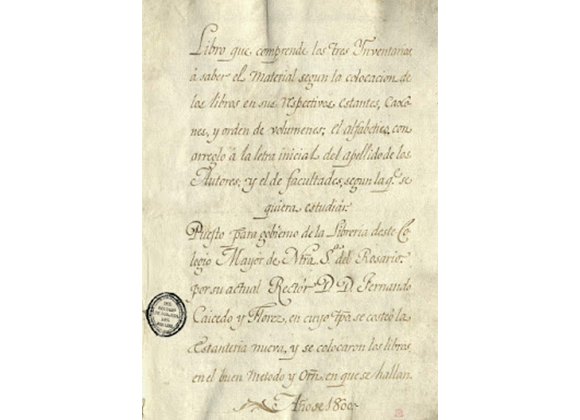 Libro que comprende los tres Ynventarios,
à saber el Material segun la colocacion de
los libros en sus respectivos estantes, Caxo
nes, y orden de volumenes; el alfabetico, con
arreglo à la letra inicial del apellido de los
Autores; y el de facultades, segun la q.e se
quiera estudiar.
Puesto para gobierno de la Libreria deste Co
legio Mayor de Ntra S.ra del Rosario:
por su actual Rectór D. D. Fernando
Caicedo y Florez, en cuyo tpo se costeó la
Estanteria nueva, y se colocaron los libros,
en el buen Metodo y Orn. en que se hallan.
Año de 1800